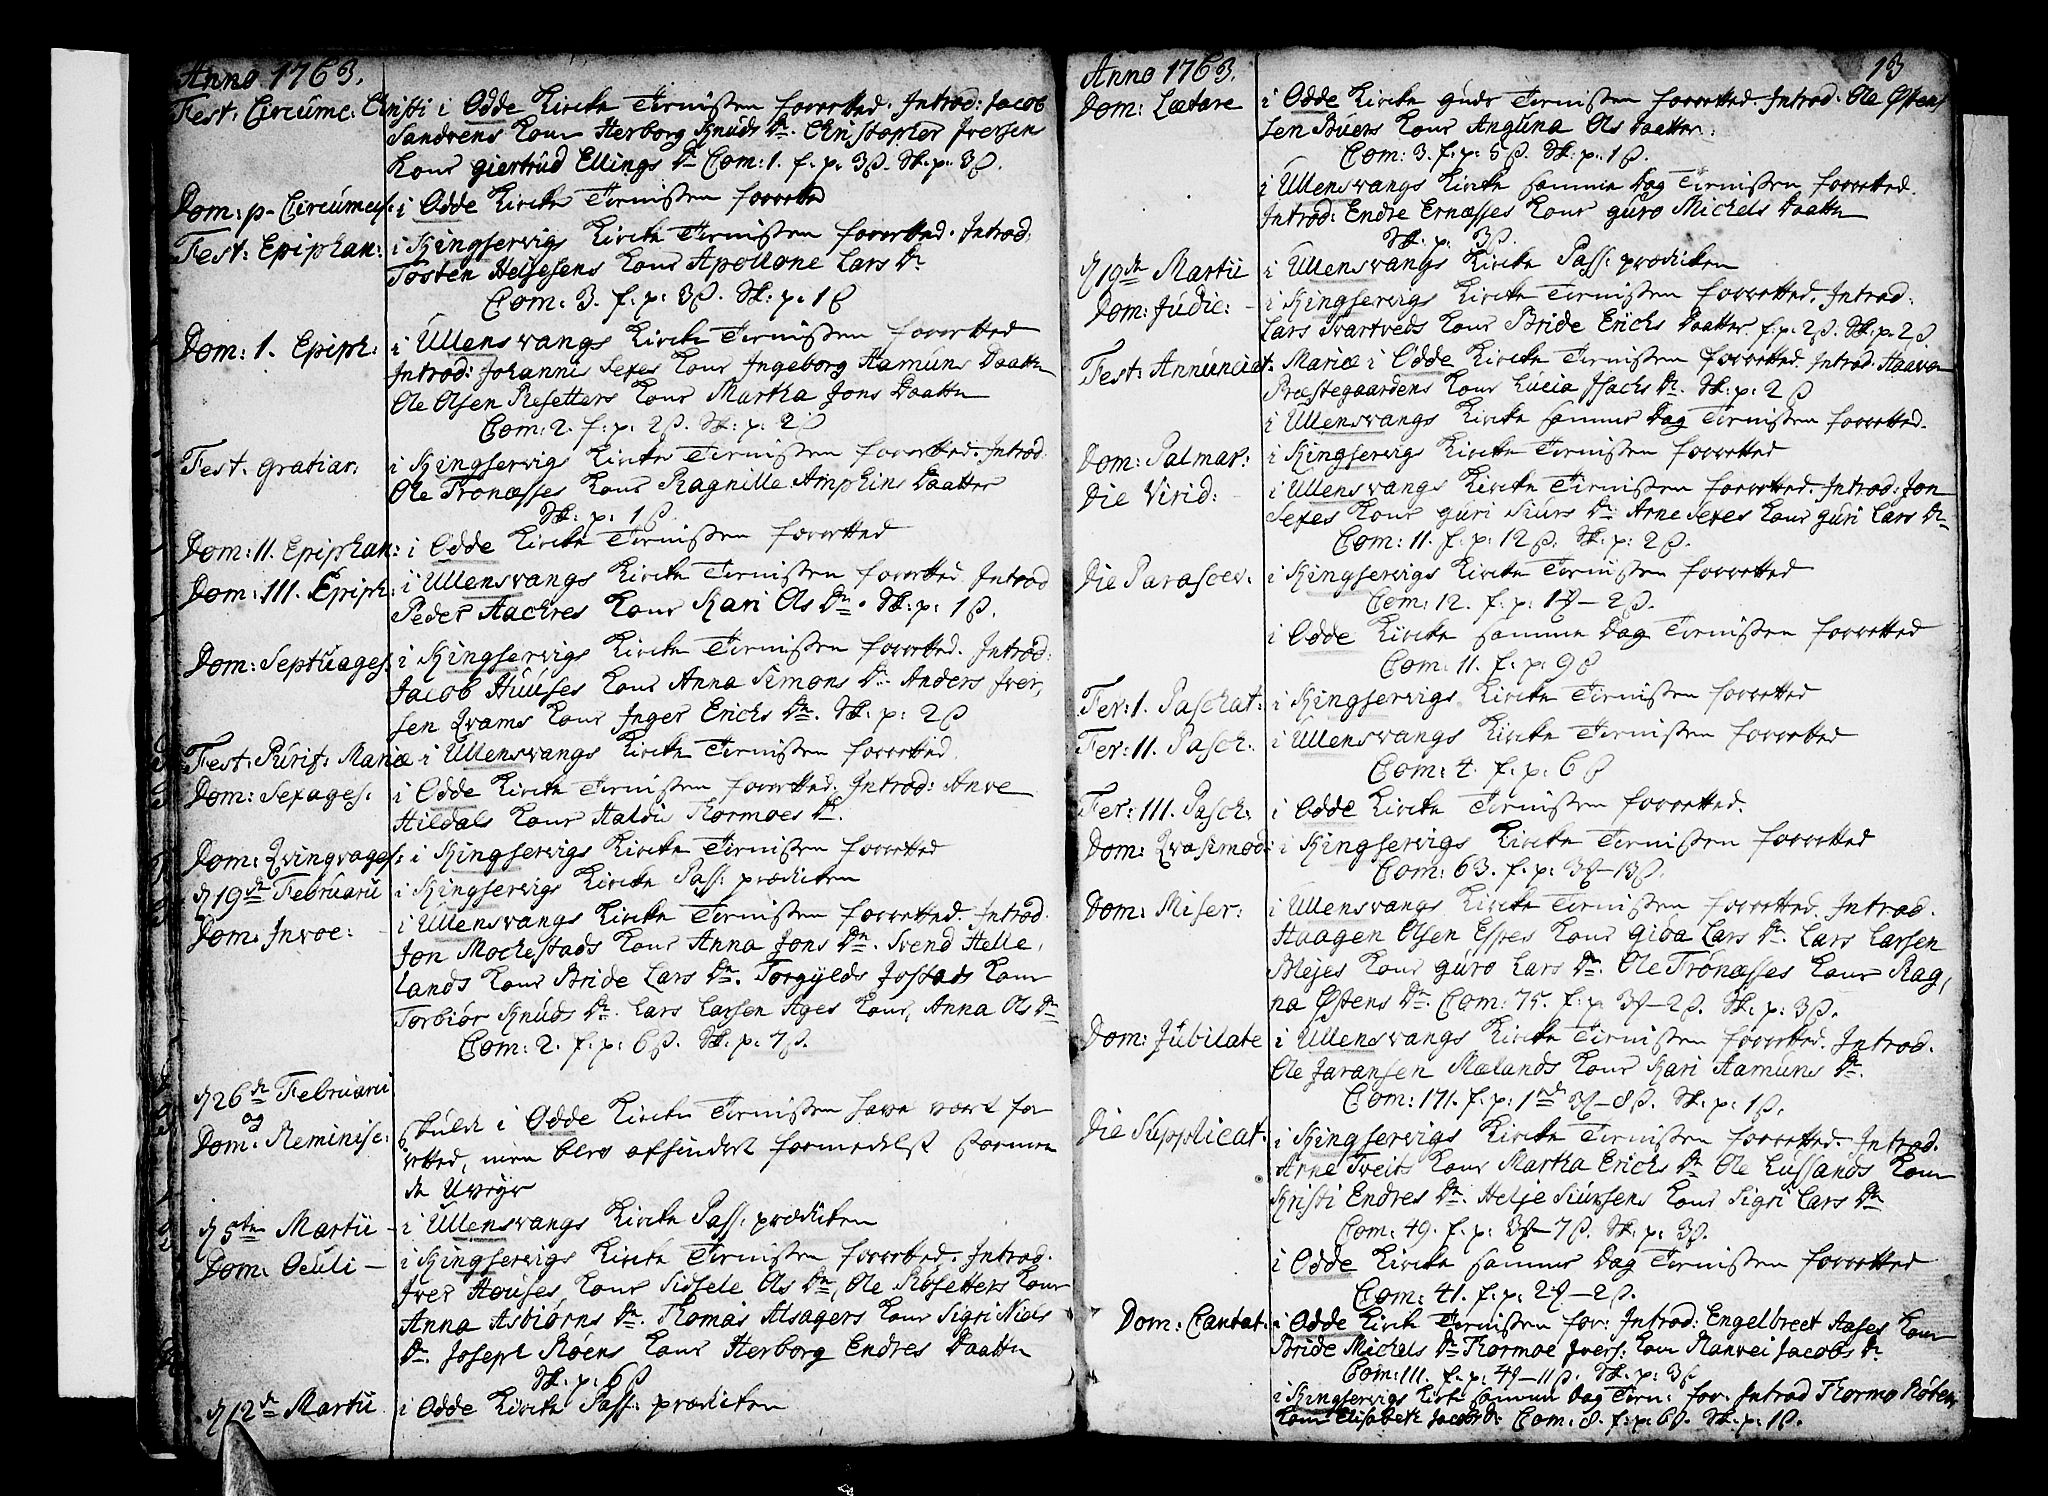 Anno 1763.
Fest: Circumc: Christi i Odde Kircke Tienisten forretted. Introd: Jacob
Sandvens Kone Herborg Knuds Dr. Christopher Iversens
Kone Giertrud Ellings Dr Com: 1. f. p. 3ß. Sk: p: 3ß.
Dom: p. Circumcis: i Odde Kircke Tienisten forretted
Fest: Epiphan: i Kingservigs Kircke Tienisten forretted. Introd:
Tosten Heljesens Kone Apollone Lars Dr
Com: 3. f: p: 3ß. Sk: p: 1ß
Dom: 1. Epiph: i Ullensvangs Kircke Tienisten forretted
Introd: Johannis Sexes Kone Ingeborg Aamuns Daatter
Ole Olsen Resetters Kone Martha Jons Daatter
Com: 2. f: p: 2ß. Sk: p: 2ß
Fest. Gratiar: i Kingservigs Kircke Tienisten forretted. Introd:
Ole Tronæsses Kone Ragnille Amphins Daatter
Sk: p: 1ß.
Dom: 11. Epiphan: i Odde Kircke Tienisten forretted
Dom: 111. Epiph: i Ullensvangs Kircke Tienisten forretted. Introd
Peder Aachres Kone Kari Ols Dr. Sk: p: 1ß.
Dom: Septuages: i Kingservigs Kircke Tienisten forretted. Introd:
Jacob Huuses Kone Anna Simons Dr. Anders Iver,
sen Qvams Kone Inger Erichs Dr. Sk: p: 2ß
Fest: Purif: Mariæ i Ullensvangs Kircke Tienisten forretted.
Dom: Sexages. i Odde Kircke Tienisten forretted. Introd: Arne
Hildals Kone Haldis Thormoes Dr.
Dom: Qvinqvages: i Kingservigs Kircke Tienisten forretted
d 19de Februarii i Kingservigs Kircke Pass: prædicken
Dom: Invoc: i Ullensvangs Kircke Tienisten forretted. Introd.
Jon Mochestads Kone Anna Jons Dr. Svend Helle,
lands Kone Bride Lars Dr. Torgylds Jostads Kone
Torbiør Knuds Dr. Lars Larsen Ages Kone, Anna Ols Dr
Com: 2. f: p: 6ß. Sk: p: 7ß.
d 26de Februarii
og
Dom: Reminisc: Skulde i Odde Kircke Tienisten have været for
retted, men blev afhindret formedelst stormen
de Uveyr
d 5ten Martii - i Ullensvangs Kircke Pass: prædicken
Dom: Oculi - i Kingservigs Kircke Tienisten forretted. Introd.
Iver Houses, Kone Sidsele Ols Dr, Ole Rosetters Kone
Anna Asbiørns Dr. Thomas Alsagers Kone Sigri Niels
Dr. Joseph Røens Kone Herborg Endres Daatter
Sk: p: 6ß
d 12de Martii i Odde Kircke Pass: prædicken
Anno 1763.
13
Dom: Lætare i Odde Kircke Guds Tienisten forretted. Introd: Ole Østen
sen Buers Kone Anguna Ols Daatter:
Com: 3. f: p: 5ß. Sk: p: 1ß.
i Ullensvangs Kircke samme Dag Tienisten forretted.
Introd: Endre Ernæsses Kone Guro Michels Daatter
Sk: p: 3ß.
d 19de Martii i Ullensvangs Kircke Pass: prædicken
Dom: Judic: - i Kingservigs Kircke Tienisten forretted. Introd:
Lars Svartveds Kone Bride Erichs Daatter f: p: 2ß. Sk: p: 2ß
Fest: Annunciat: Mariæ i Odde Kircke Tienisten forretted. Introd: Haavor
Præstegaardens Kone Lucia Isachs Dr. Sk: p: 2ß
i Ullensvangs Kircke samme Dag Tienisten forretted.
Dom: Palmar: i Kingservigs Kircke Tienisten forretted
Die Virid: - i Ullensvangs Kircke Tienisten forretted. Introd: Jon
Sexes Kone Guri Siurs Dr. Arne Sexes Kone Guri Lars Dr
Com: 11. f: p: 12ß. Sk: p: 2ß.
Die Parascev. i Kingservigs Kircke Tienisten forretted
Com: 12. f: p: 1 - 2ß.
i Odde Kircke samme Dag Tienisten forretted
Com: 11. f: p: 9ß
Fer: 1. Paschat: i Kingservigs Kircke Tienisten forretted
Fer: 11. Pasch: i Ullensvangs Kircke Tienisten forretted
Com: 4. f: p: 6ß
Fer: 111. Pasch: i Odde Kircke Tienisten forretted.
Dom: Qvasimod: i Kingservigs Kircke Tienisten forretted
Com: 63. f: p: 3 - 13ß.
Dom: Miser: i Ullensvangs Kircke Tienisten forretted. Introd.
Haagen Olsen Espes Kone Gioa Lars Dr. Lars Larsen
Blejes Kone Guro Lars Dr. Ole Tronæsses Kone Rag,
na Østens Dr. Com: 75. f: p: 3 - 2ß. Sk: p: 3ß.
Dom: Jubilate i Ullensvangs Kircke Tienisten forretted. Introd.
Ole Jaransen Mælands Kone Kari Aamuns Dr.
Com: 171. f: p: 1rd 3 - 8ß. Sk: p: 1ß.
Die Supplicat: i Kingservigs Kircke Tienisten forretted. Introd.
Arne Tveits Kone Martha Erichs Dr Ole Lussands Kone
Kristi Endres Dr. Helje Siursens Kone Sigri Lars Dr
Com: 49. f: p: 3 - 7ß. Sk: p: 3ß.
i Odde Kircke samme Dag Tienisten forretted
Com: 41. f: p: 2 - 2ß.
Dom: Cantat: i Odde Kirck Tienisten for: Introd: Engelbrect Aases Kone
Bride Michels Dr Thormoe Ivers: Kone Ranvei Jacobs Dr
Com: 111. f: p: 4 - 11ß. Sk: p: 3ß
i Kingservigs Kirke samme Dag Tien: for: Introd Thormo
Kone Elisabeth Jacobs Dr: Com: 8. f: p: 6ß. Sk: p: 1ß.